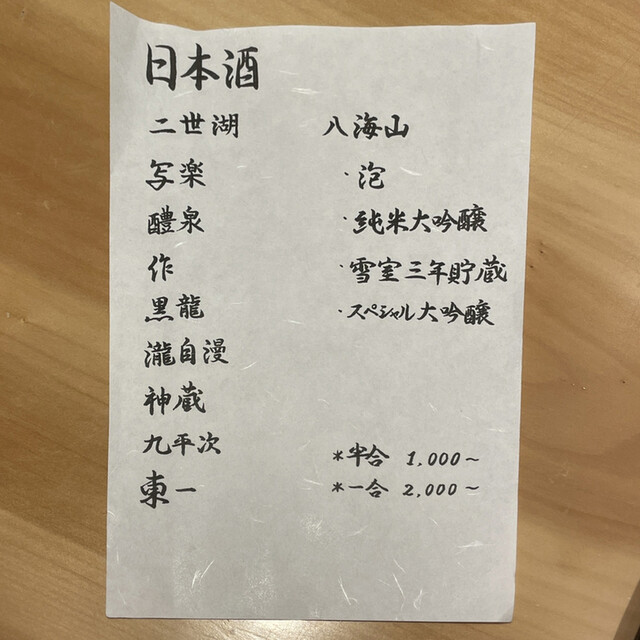 日本酒
二世湖
写楽
醴泉
作
黒龍
瀧自漫
神蔵
九平次
東一
八海山
・泡
・純米大吟醸
・雪室三年貯蔵
・スペシャル大吟醸
*半合 1,000~
*一合 2,000~